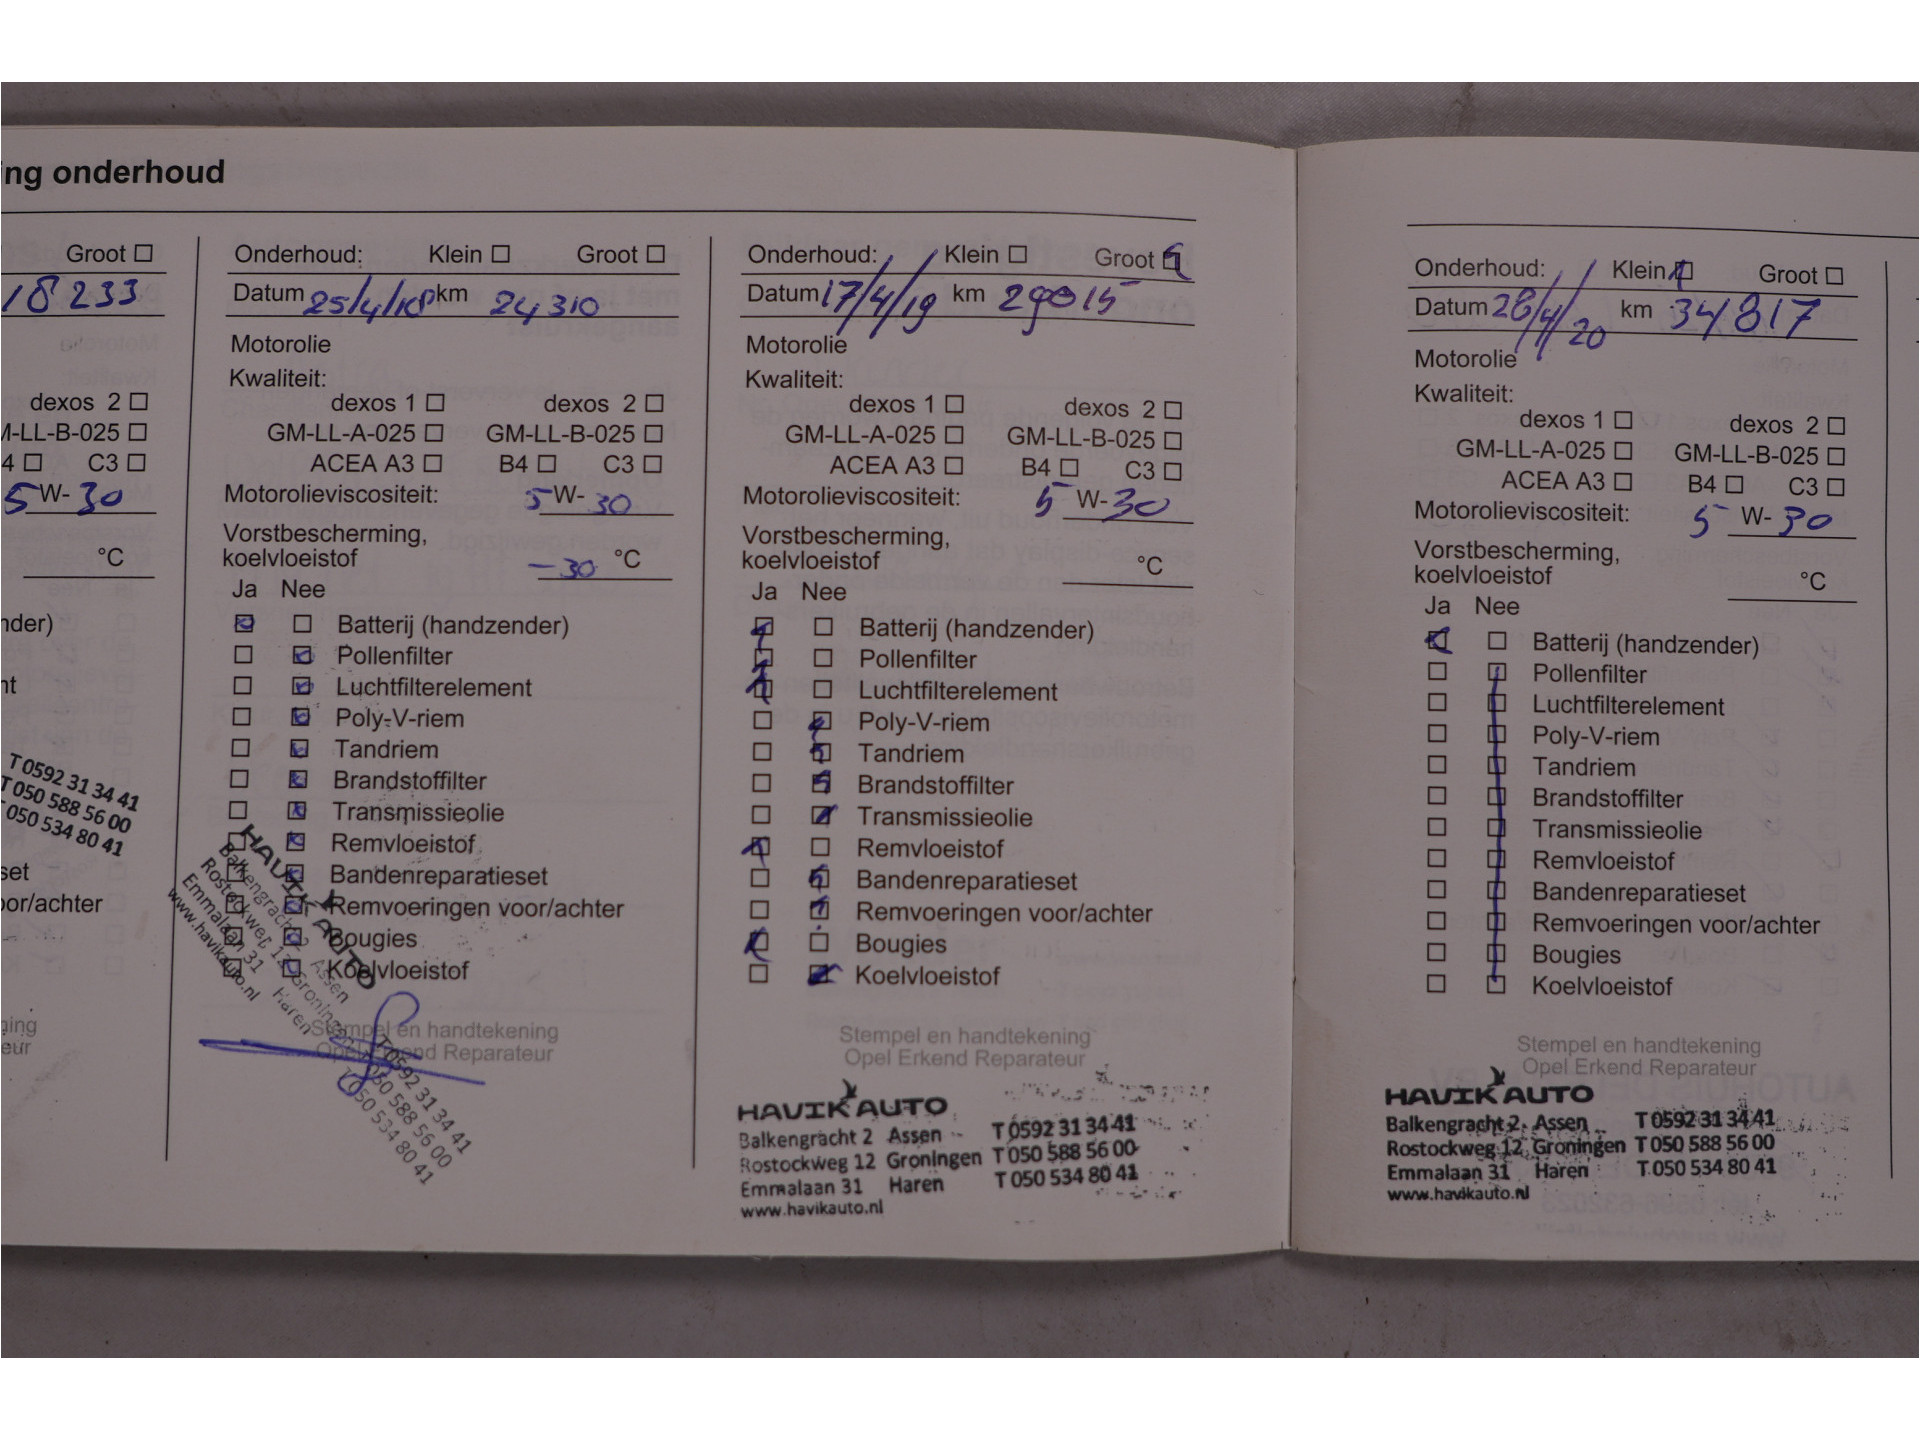 ing onderhoud
Groot
18233
dexos 2
M-LL-B-025
4 C3
5 W-30
°C
nder)
nt
T 0592 31 34 41
T 050 588 56 00
T 050 534 80 41
set
oor/achter
ning
eur
Onderhoud: Klein Groot
Datum 25/4/18 km 24310
Motorolie
Kwaliteit:
dexos 1 dexos 2
GM-LL-A-025 GM-LL-B-025
ACEA A3 B4 C3
Motorolieviscositeit: 5 W- 30
Vorstbescherming,
koelvloeistof -30 °C
Ja Nee
Batterij (handzender)
Pollenfilter
Luchtfilterelement
Poly-V-riem
Tandriem
Brandstoffilter
Transmissieolie
Remvloeistof
Bandenreparatieset
Remvoeringen voor/achter
Bougies
Koelvloeistof
Stempel en handtekening
Opel Erkend Reparateur
HAVIK AUTO
Balkengracht 2 Assen T 0592 31 34 41
Rostockweg 12 Groningen T 050 588 56 00
Emmalaan 31 Haren T 050 534 80 41
www.havikauto.nl
Onderhoud: Klein Groot
Datum 17/4/19 km 29015
Motorolie
Kwaliteit:
dexos 1 dexos 2
GM-LL-A-025 GM-LL-B-025
ACEA A3 B4 C3
Motorolieviscositeit: 5 W-30
Vorstbescherming,
koelvloeistof °C
Ja Nee
Batterij (handzender)
Pollenfilter
Luchtfilterelement
Poly-V-riem
Tandriem
Brandstoffilter
Transmissieolie
Remvloeistof
Bandenreparatieset
Remvoeringen voor/achter
Bougies
Koelvloeistof
Stempel en handtekening
Opel Erkend Reparateur
HAVIK AUTO
Balkengracht 2 Assen T 0592 31 34 41
Rostockweg 12 Groningen T 050 588 56 00
Emmalaan 31 Haren T 050 534 80 41
www.havikauto.nl
Onderhoud: Klein Groot
Datum 28/4/20 km 34817
Motorolie
Kwaliteit:
dexos 1 dexos 2
GM-LL-A-025 GM-LL-B-025
ACEA A3 B4 C3
Motorolieviscositeit: 5 W- 30
Vorstbescherming,
koelvloeistof °C
Ja Nee
Batterij (handzender)
Pollenfilter
Luchtfilterelement
Poly-V-riem
Tandriem
Brandstoffilter
Transmissieolie
Remvloeistof
Bandenreparatieset
Remvoeringen voor/achter
Bougies
Koelvloeistof
Stempel en handtekening
Opel Erkend Reparateur
HAVIK AUTO
Balkengracht 2 Assen T 0592 31 34 41
Rostockweg 12 Groningen T 050 588 56 00
Emmalaan 31 Haren T 050 534 80 41
www.havikauto.nl